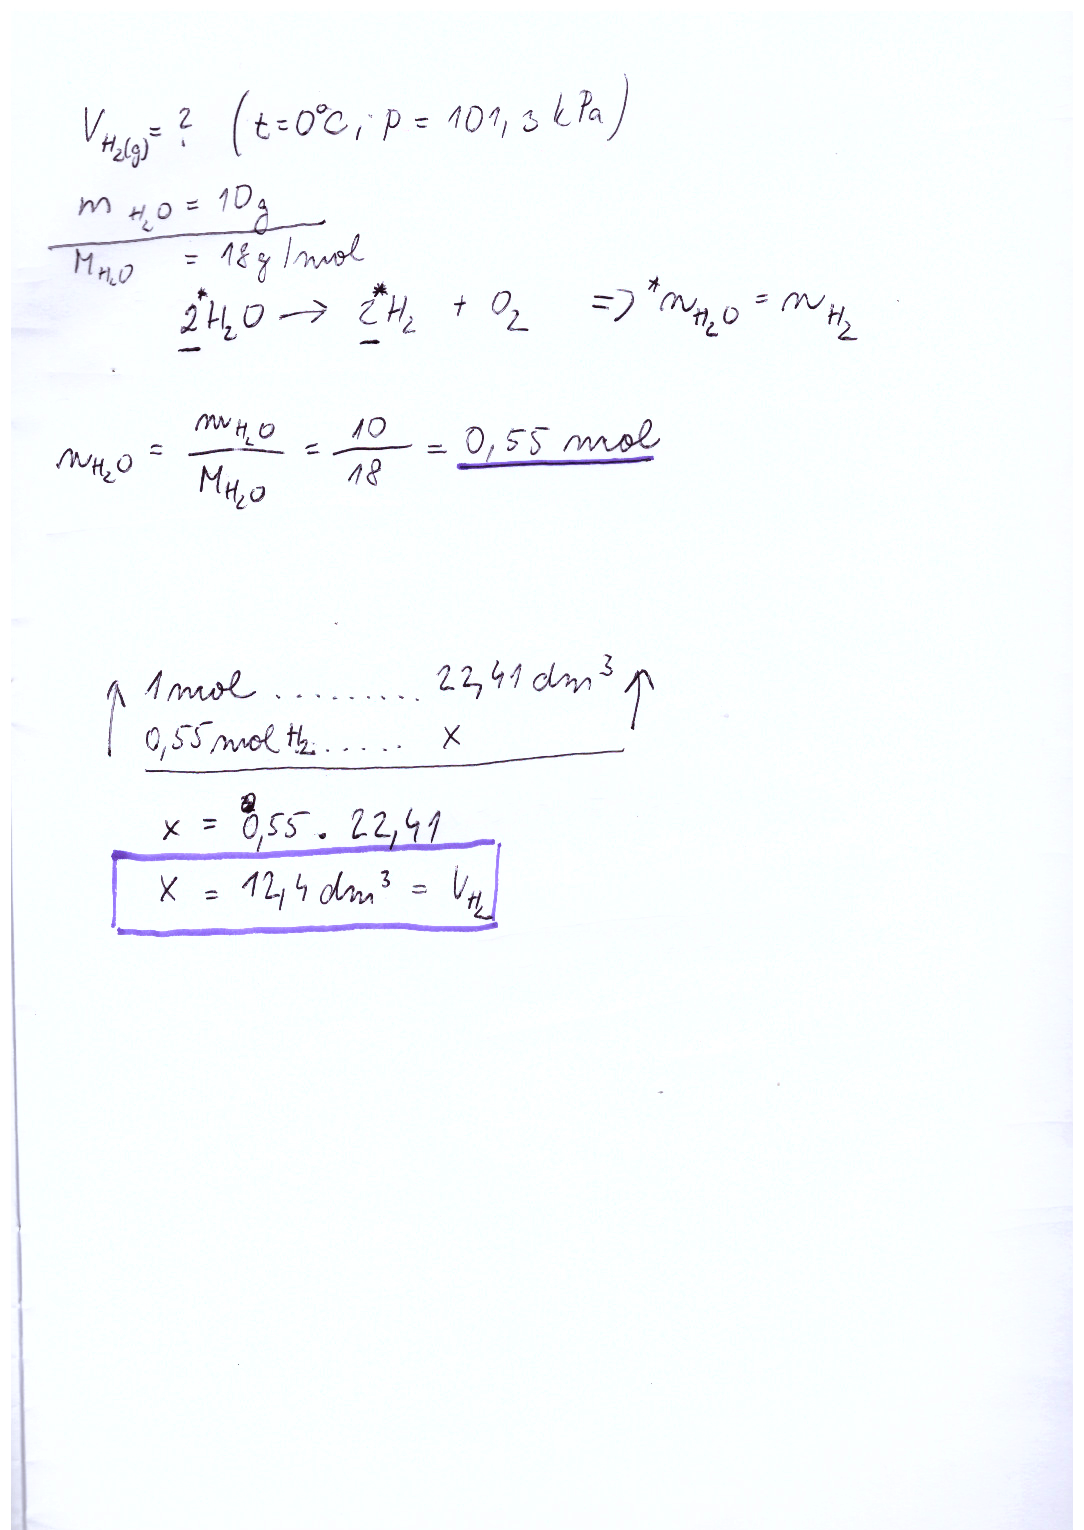 V H₂(g) = ? (t = 0°C, p = 101,3 kPa)
m H₂O = 10g
M H₂O = 18g/mol
2*H₂O → 2*H₂ + O₂ => *n H₂O = n H₂
n H₂O = m H₂O / M H₂O = 10 / 18 = 0,55 mol
↑ 1 mol ......... 22,41 dm³ ↑
0,55 mol H₂ ...... x
x = 0,55 . 22,41
x = 12,4 dm³ = V H₂